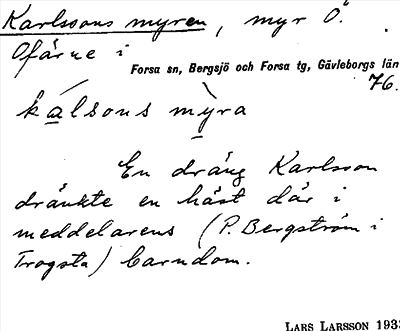 Karlssons myren, myr Ö.
Ofärne i
Forsa sn, Bergsjö och Forsa tg, Gävleborgs län
76.
kalsons myra
En dräng Karlsson
dränkte en häst där i
meddelarens (P. Bergström i
Trogsta) barndom.
LARS LARSSON 193